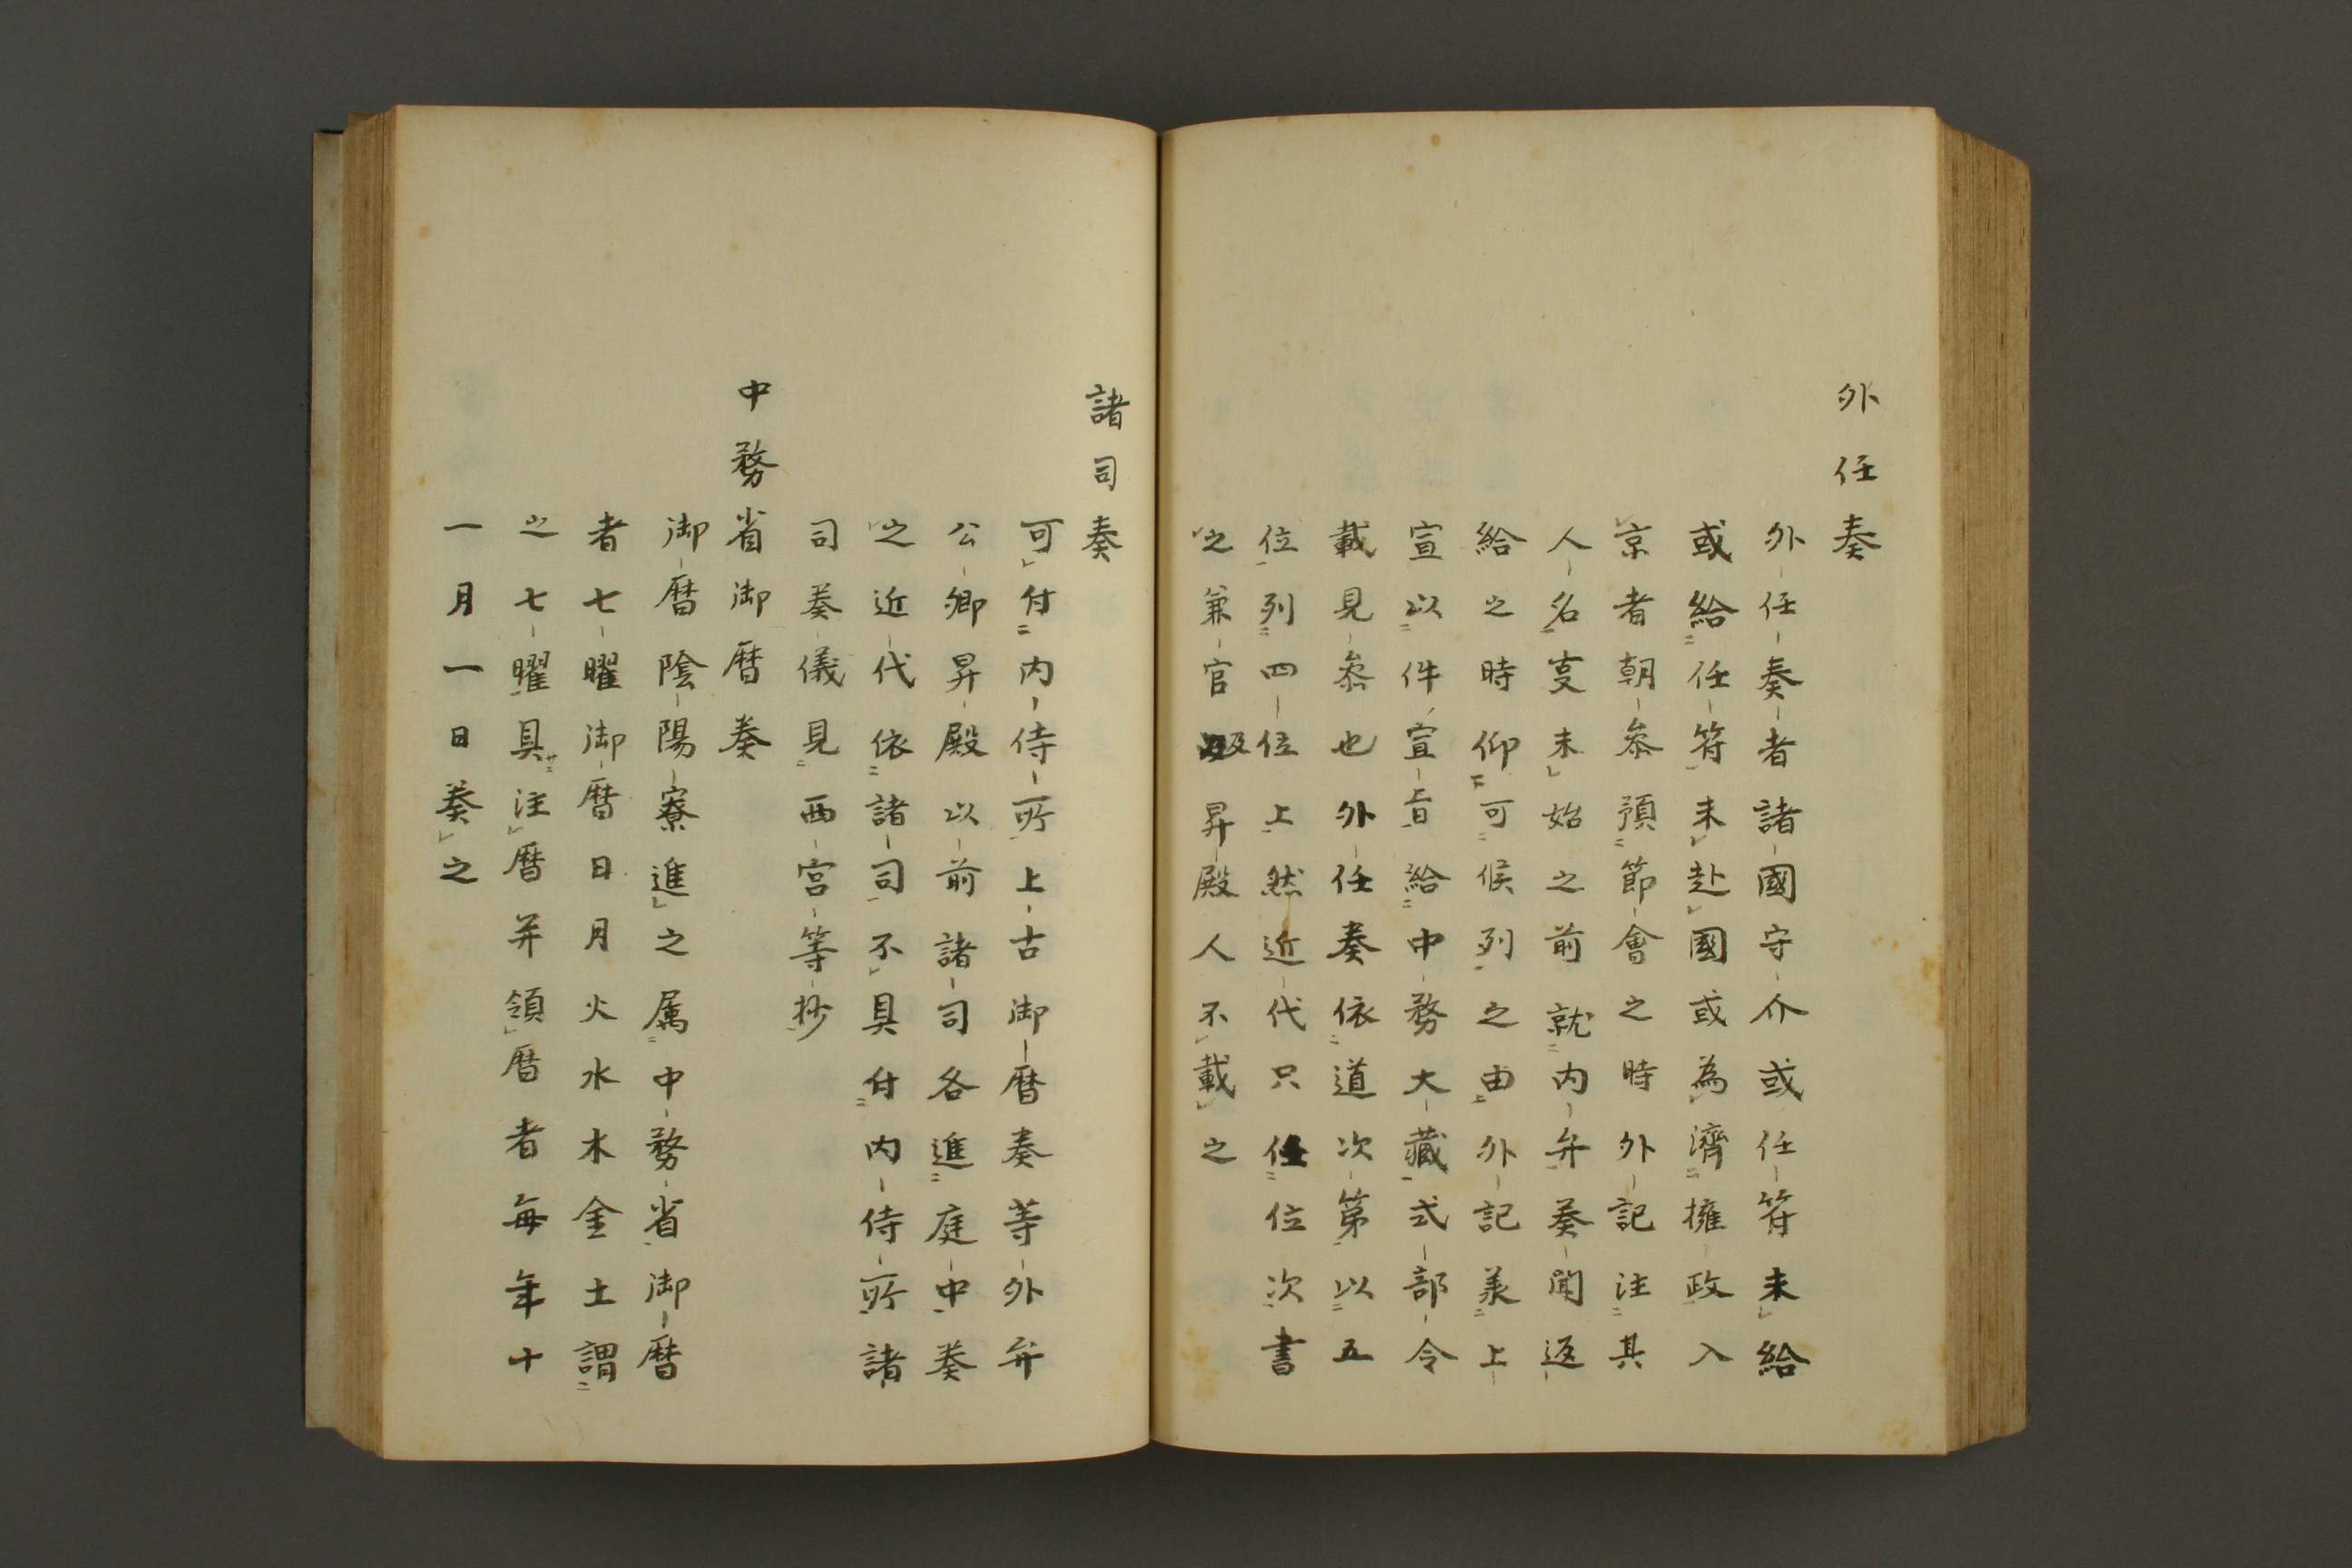 外任奏
外任奏者諸國守介或任符未給
或給任符未赴國或為濟擁政入
京者朝叅預節會之時外記注其
人名㕝未始之前就内弁奏聞返
給之時仰可候列之由外記兼上
宣以件宣旨給中務大藏式部令
載見叅也外任奏依道次第以五
位列四位上然近代只任位次書
之兼官昇殿人不載之
諸司奏
可付内侍所上古御暦奏等外弁
公卿昇殿以前諸司各進庭中奏
之近代依諸司不具付内侍所諸
司奏儀見西宮等抄
中務省御暦奏
御暦陰陽寮進之属中務省御暦
者七曜御暦日月火水木金土謂
之七曜具注暦并領暦者毎年十
一月一日奏之